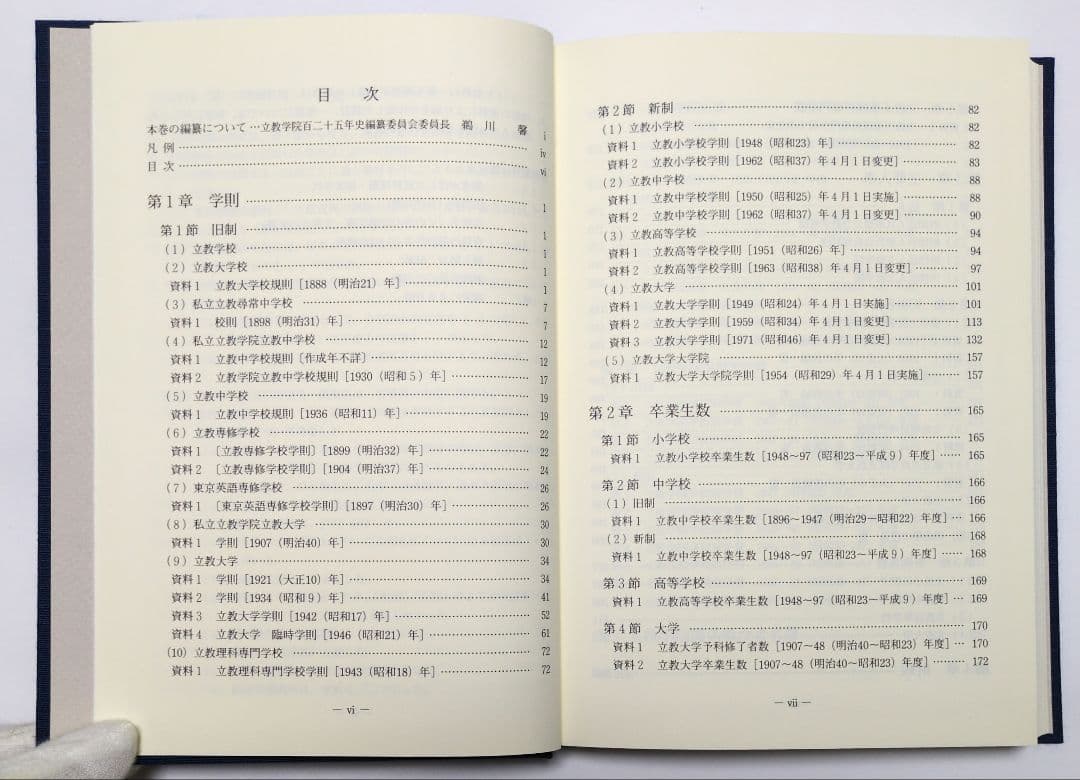 目次
本巻の編纂について…立教学院百二十五年史編纂委員会委員長 鵜川 馨 i
凡例 iv
目次 vi
第1章 学則 1
第1節 旧制 1
(1) 立教学校 1
(2) 立教大学校 1
資料1 立教大学校規則[1888(明治21)年] 1
(3) 私立立教尋常中学校 7
資料1 校則[1898(明治31)年] 7
(4) 私立立教学院立教中学校 12
資料1 立教中学校規則[作成年不詳] 12
資料2 立教学院立教中学校規則[1930(昭和5)年] 17
(5) 立教中学校 19
資料1 立教中学校規則[1936(昭和11)年] 19
(6) 立教専修学校 22
資料1 〔立教専修学校学則〕[1899(明治32)年] 22
資料2 〔立教専修学校学則〕[1904(明治37)年] 24
(7) 東京英語専修学校 26
資料1 〔東京英語専修学校学則〕[1897(明治30)年] 26
(8) 私立立教学院立教大学 30
資料1 学則[1907(明治40)年] 30
(9) 立教大学 34
資料1 学則[1921(大正10)年] 34
資料2 学則[1934(昭和9)年] 41
資料3 立教大学学則[1942(昭和17)年] 52
資料4 立教大学 臨時学則[1946(昭和21)年] 61
(10) 立教理科専門学校 72
資料1 立教理科専門学校学則[1943(昭和18)年] 72
― vi ―
第2節 新制 82
(1) 立教小学校 82
資料1 立教小学校学則[1948(昭和23)年] 82
資料2 立教小学校学則[1962(昭和37)年4月1日変更] 83
(2) 立教中学校 88
資料1 立教中学校学則[1950(昭和25)年4月1日実施] 88
資料2 立教中学校学則[1962(昭和37)年4月1日変更] 90
(3) 立教高等学校 94
資料1 立教高等学校学則[1951(昭和26)年] 94
資料2 立教高等学校学則[1963(昭和38)年4月1日変更] 97
(4) 立教大学 101
資料1 立教大学学則[1949(昭和24)年4月1日実施] 101
資料2 立教大学学則[1959(昭和34)年4月1日変更] 113
資料3 立教大学学則[1971(昭和46)年4月1日変更] 132
(5) 立教大学大学院 157
資料1 立教大学大学院学則[1954(昭和29)年4月1日実施] 157
第2章 卒業生数 165
第1節 小学校 165
資料1 立教小学校卒業生数[1948~97(昭和23~平成9)年度] 165
第2節 中学校 166
(1) 旧制 166
資料1 立教中学校卒業生数[1896~1947(明治29~昭和22)年度] 166
(2) 新制 168
資料1 立教中学校卒業生数[1948~97(昭和23~平成9)年度] 168
第3節 高等学校 169
資料1 立教高等学校卒業生数[1948~97(昭和23~平成9)年度] 169
第4節 大学 170
資料1 立教大学予科修了者数[1907~48(明治40~昭和23)年度] 170
資料2 立教大学卒業生数[1907~48(明治40~昭和23)年度] 172
― vii ―